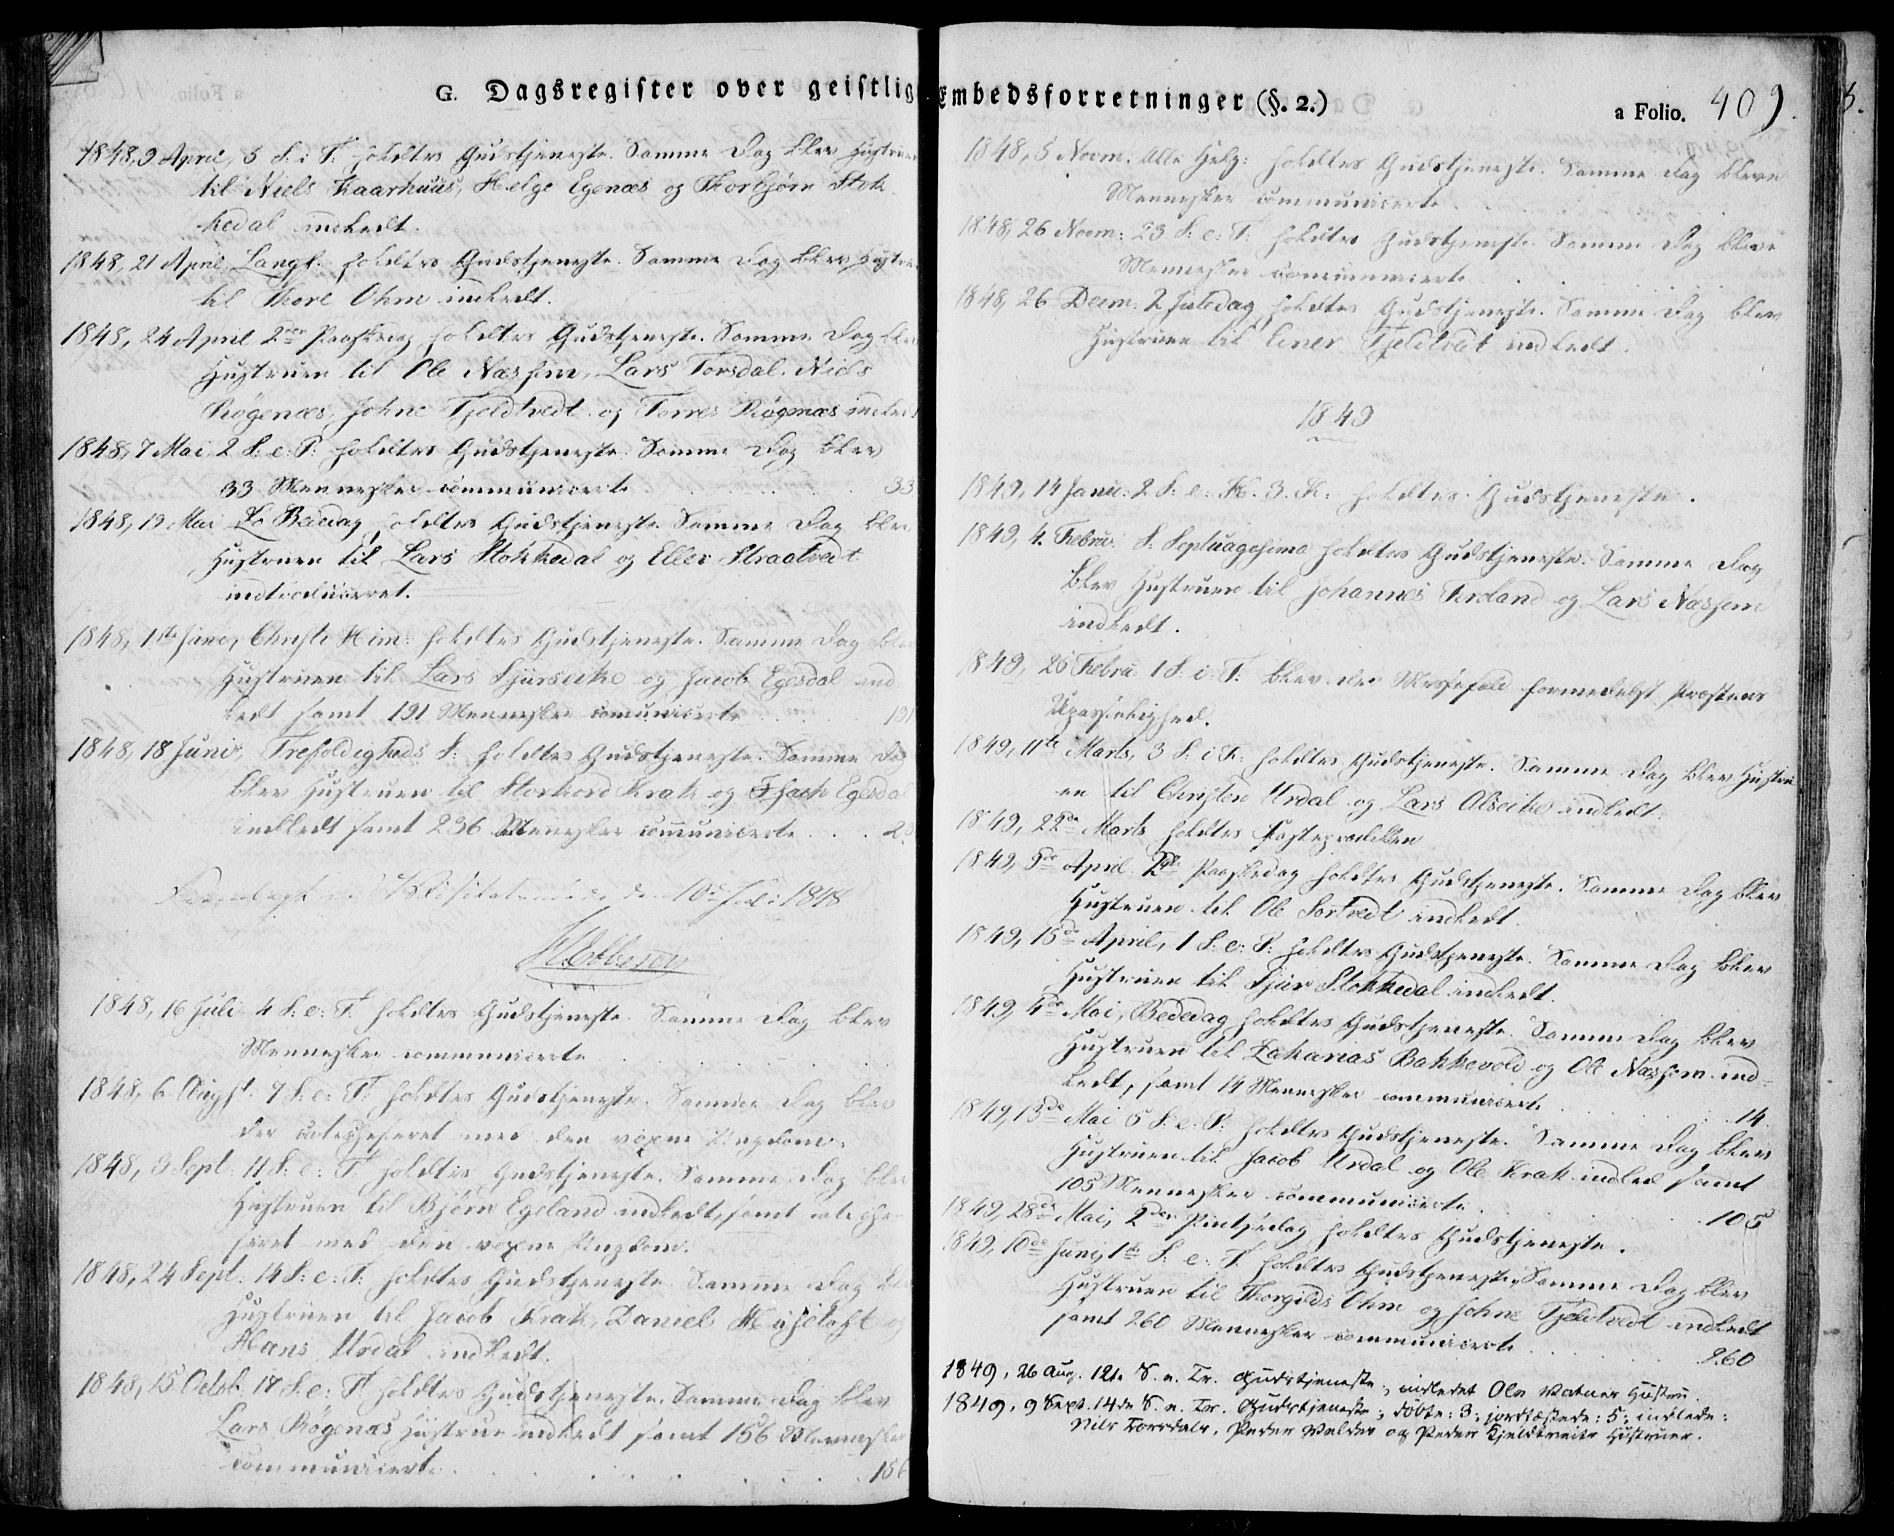 G. Dagsregister over geistlig Embedsforretninger (§. 2.)
a Folio. 409.
1848, 9 April, 5 S. i F. holdtes Gudstjeneste. Samme Dag blev Hustruen
til Niels Kaarhuus, Helge Egenæs og Thorbjørn Stok
kedal indledt.
1848, 21 April Langf. holdtes Gudstjeneste. Samme Dag blev Hustruen
til Thore Ohm indledt.
1848, 24 April 2den Paaskedag holdtes Gudstjeneste. Samme Dag blev
Hustruen til Ole Næshem, Lars Torsdal, Niels
Røgenæs, Johne Tjeldtvedt og Torres Røgenæs indledt
1848, 7 Mai 2 S. e. P. holdtes Gudstjeneste. Samme Dag blev
33 Mennesker communicerte . . . 33
1848, 19 Mai Bededag holdtes Gudstjeneste. Samme Dag blev
Hustruen til Lars Stokkedal og Eller Straatvedt
introduceret.
1848, 1ste Juni, Christi Him: holdtes Gudstjeneste. Samme Dag blev
Hustruen til Lars Sjurseike og Jacob Egesdal ind
ledt samt 191 Mennesker comunicerte . . . 191
1848, 18 Juni, Trefoldigheds S: holdtes Gudstjeneste. Samme Dag
blev Hustruen til Krak og Egesdal
indledt samt 236 Mennesker communicerte . . .
Visitatsen den 10de Juli 1848
1848, 16 Juli 4 S: e: T. holdtes Gudstjeneste. Samme Dag blev
Mennesker communicerte . . .
1848, 6 Augst. 7 S: e: T: holdtes Gudstjeneste. Samme Dag blev
der catechiseret med den voxne Ungdom.
1848, 3 Sept: 11 S: e: T. holdtes Gudstjeneste. Samme Dag blev
Hustruen til Bjørn Egeland indledt, samt cateche
seret med den voxne Ungdom.
1848, 24 Sept: 14 S: e: T: holdtes Gudstjeneste. Samme Dag
Hustruen til Jacob Krak, Daniel
Hans Urdal indledt.
1848, 15 Octob. 17 S: e: T. holdtes Gudstjeneste. Samme Dag blev
Lars Røgenæs Hustrue indledt samt 156 Mennesker
communicerte . . . 156
1848, 5 Novm. Alle Helg: holdtes Gudstjeneste. Samme Dag bleve
Mennesker communicerte
1848, 26 Novm: 23 S: e: T: holdtes Gudstjeneste. Samme Dag bleve
Mennesker communicerte
1848, 26 Decm: 2 Juledag holdtes Gudstjeneste. Samme Dag blev
Hustruen til Einer Tjeldtvedt indledt.
1849
1849, 14 Janu: 2 S: e: H. 3. K: holdtes Gudstjeneste.
1849, 4. Febru: S. Septuagesima holdtes Gudstjeneste. Samme Dag
blev Hustruen til Johannes Kroland og Lars Næshem
indledt.
1849, 25 Febru: 1 S: i F: blev der Messefald formedelst Præstens
Upasselighed.
1849, 11te Marts, 3 S: i F: holdtes Gudstjeneste. Samme Dag blev Hustru
en til Christen Urdal og Lars Alseike indledt.
1849, 22de Marts holdtes Fasteprædiken
1849, 9de April 2den Paaskedag holdtes Gudstjeneste. Samme Dag blev
Hustruen til Ole Sortvedt indledt.
1849, 15de April, 1 S: e: P: holdtes Gudstjeneste. Samme Dag blev
Hustruen til Sjur Stokkedal indledt.
1849, 4de Mai, Bededag holdtes Gudstjeneste. Samme Dag blev
Hustruen til Zakarias Bakkevold og Ole Næshem ind-
ledt, samt 14 Mennesker communicerte . . . 14.
1849, 13de Mai 5 S: e: P: holdtes Gudstjeneste. Samme Dag blev
Hustruen til Jacob Urdal og Ole Krak indled samt
105 Mennesker communicerte . . . 105
1849, 28de Mai, 2den Pintsedag holdtes Gudstjeneste.
1849, 10de Juni, 1ste S: e: T. holdtes Gudstjeneste. Samme Dag blev
Hustruen til Thorgilds Ohm og Johne Tjeldtvedt indledt
samt 260 Mennesker communicerte . . . 260
1849, 26 Aug. 12te S. e. Tr. Gudstjeneste; indledet Ole Vatnes Hustru.
1849, 9 Sept. 14de S. e. Tr. Gudstjeneste; døbte: 3; jordfæstede: 5; indlede:
Nils Torsdals, Peder Veldes og Peder Kjeldtveits Hustruer.